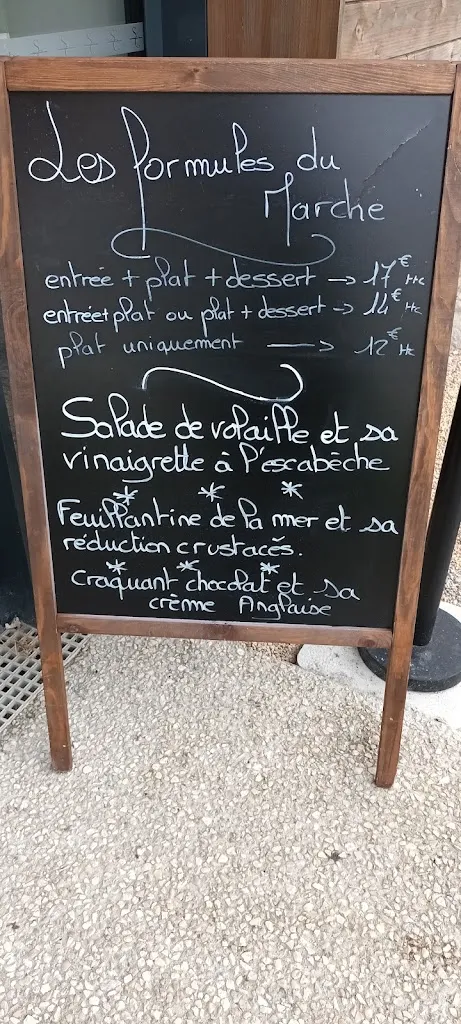 Les formules du
Marche
entrée + plat + dessert → 17€
entrée+plat ou plat + dessert → 14€
plat uniquement → 12€
Salade de volaille et sa
vinaigrette à l'escabèche
* * *
Feuillantine de la mer et sa
réduction crustacés.
* * *
Craquant chocolat et sa
crème Anglaise